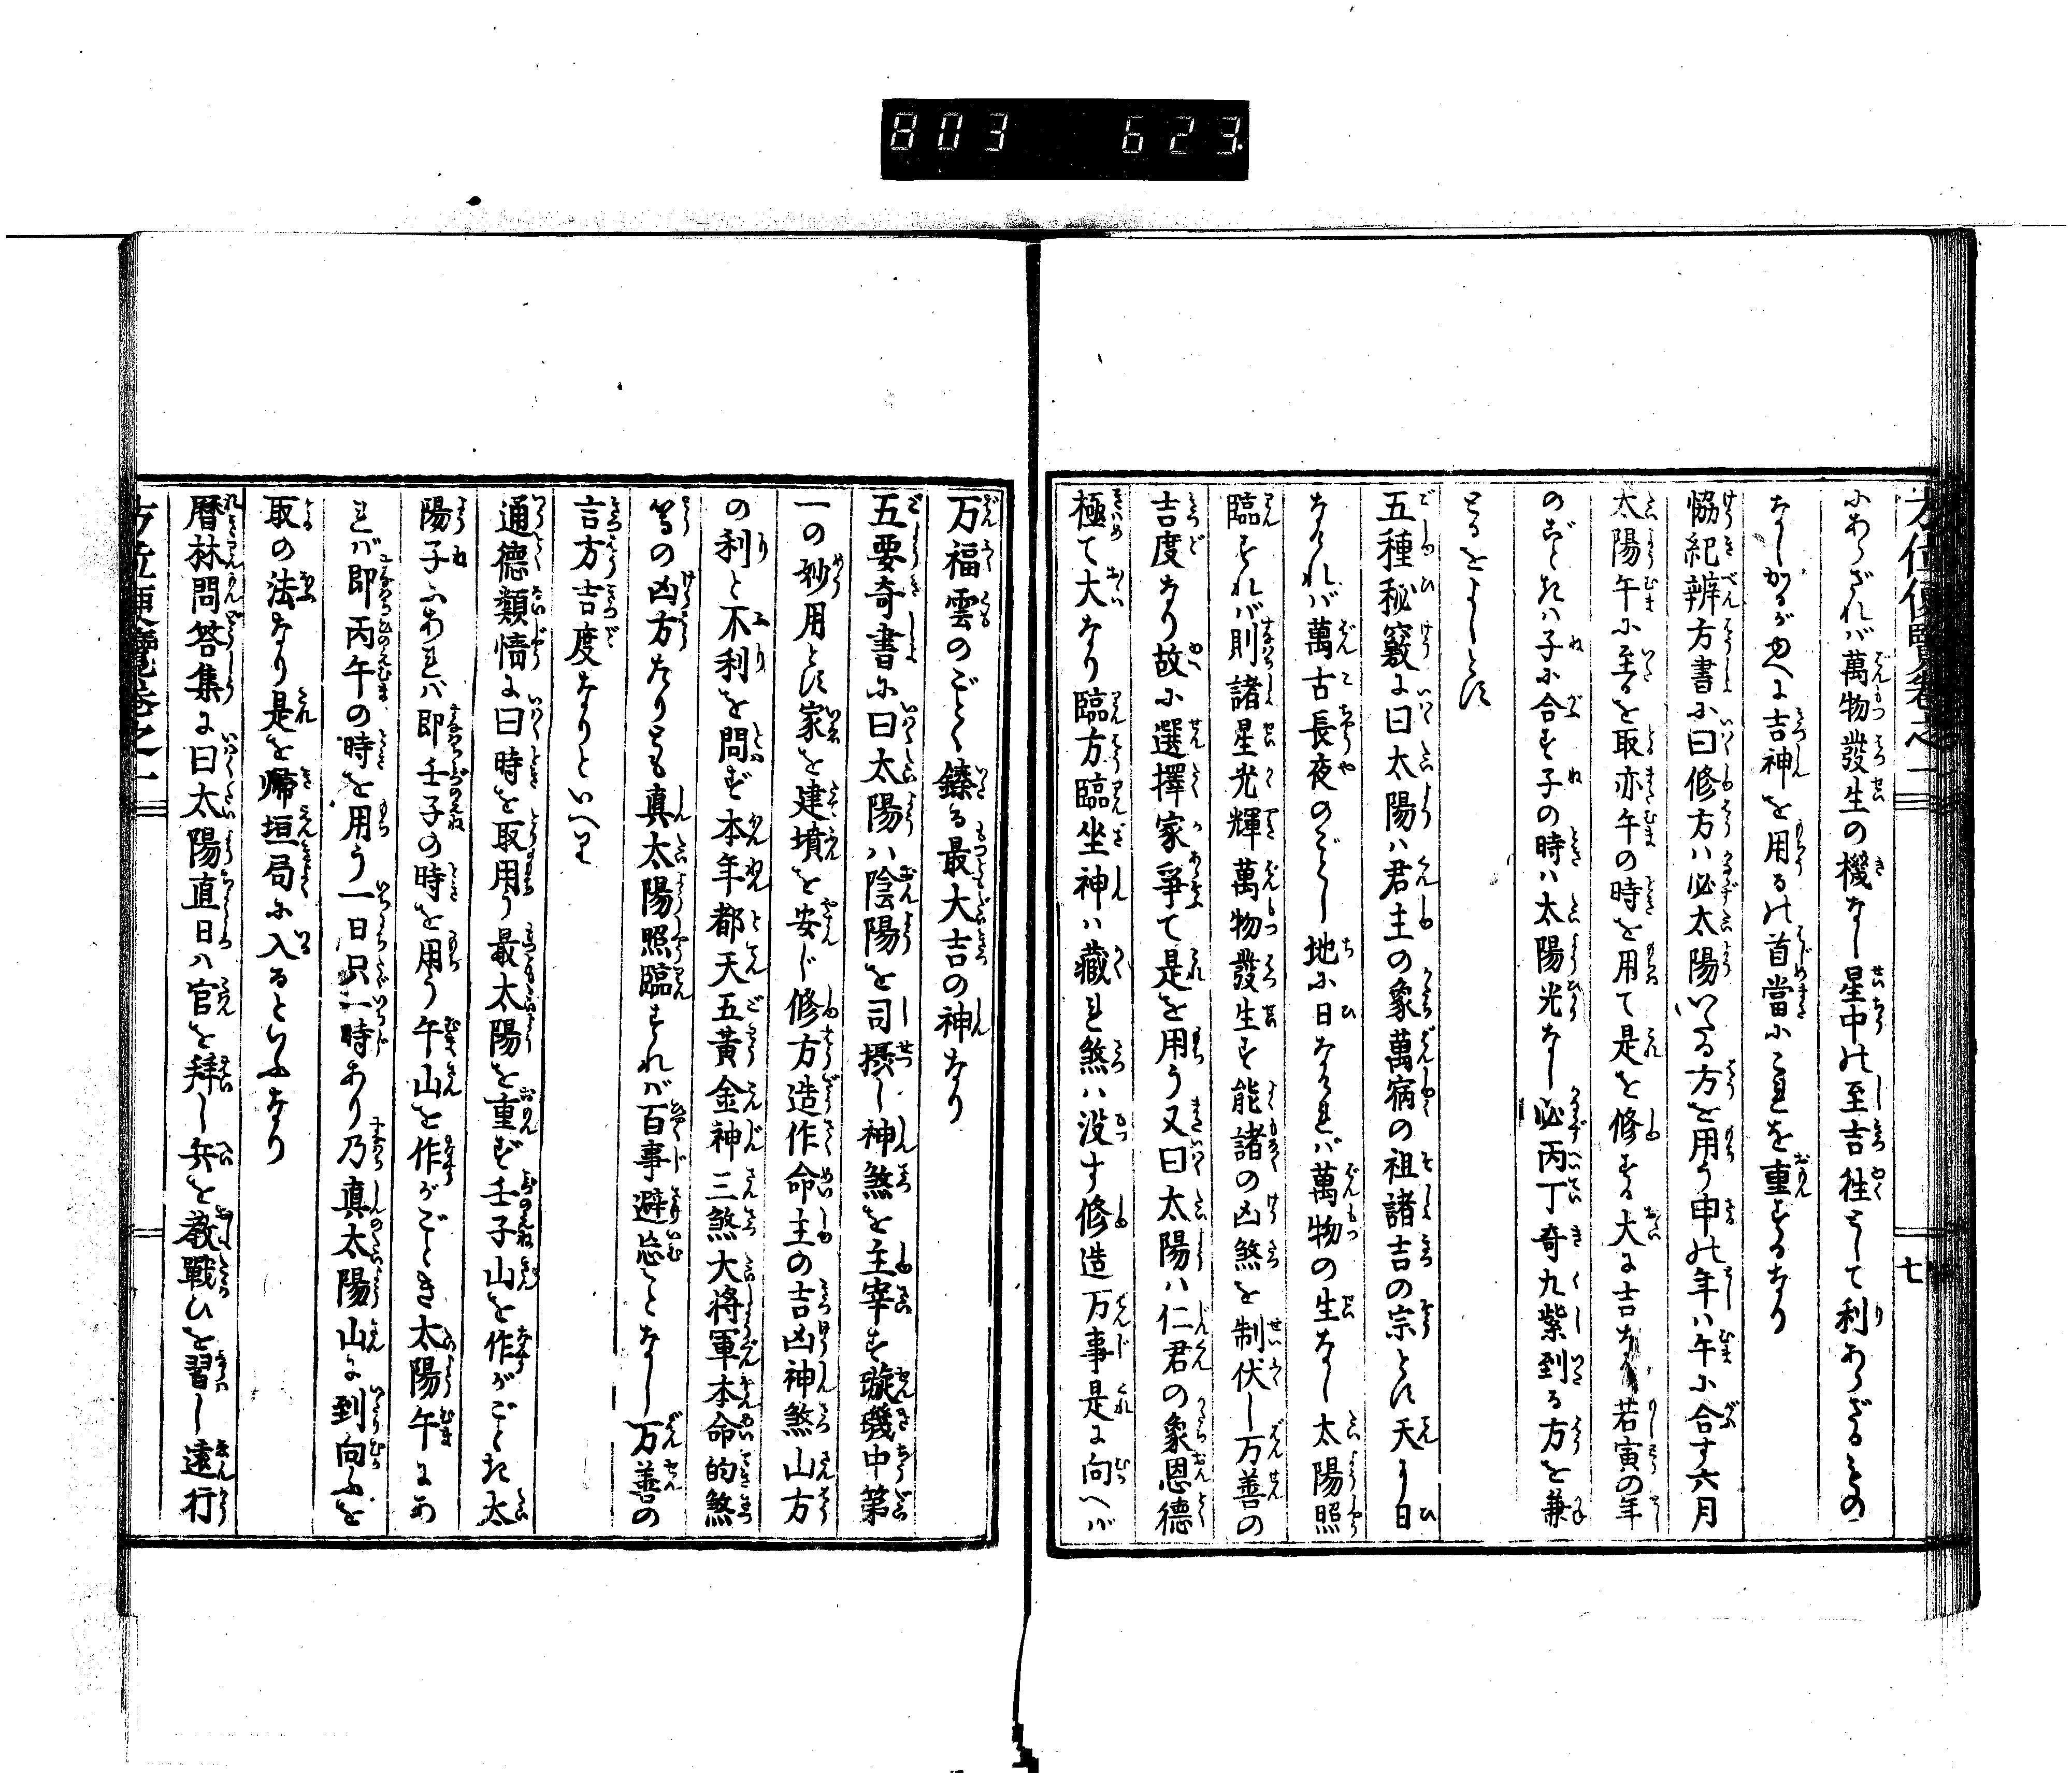 803 623
方位便覧卷之一 七
にあらざれバ萬物發生の機なし星中の至吉徃として利あらざるもの
なしかるがゆへに吉神を用るの首當にこれを重ずるなり
協紀辨方書に曰修方ハ必太陽いたる方を用う申の年ハ午に合す六月
太陽午に至るを取亦午の時を用て是を修する大に吉なり若寅の年
のごときハ子に合す子の時ハ太陽光なし必丙丁奇九紫到る方を兼
とるをよしとす
五種秘竅に曰太陽ハ君主の象萬宿の祖諸吉の宗とす天より日
なけれバ萬古長夜のごとし地に日なけれバ萬物の生なし太陽照
臨すれバ則諸星光輝萬物發生す能諸の凶煞を制伏し万善の
吉度なり故に選擇家爭て是を用う又曰太陽ハ仁君の象恩德
極て大なり臨方臨坐神ハ藏れ煞ハ没す修造万事是に向へバ
万福雲のごとく鐛る最大吉の神なり
五要奇書に曰太陽ハ陰陽を司摂し神煞を主宰す璇璣中第
一の妙用とす家を建墳を安じ修方造作命主の吉凶神煞山方
の利と不利を問ず本年都天五黃金神三煞大将軍本命的煞
等の凶方たりとも真太陽照臨すれバ百事避忌ことなし万善の
吉方吉度なりといへり
通德類情に曰時を取用う最太陽を重ず壬子山を作がごとき太
陽子にあれバ即壬子の時を用う午山を作がごとき太陽午にあ
れバ即丙午の時を用う一日只一時あり乃真太陽山に到向ふを
取の法なり是を帰垣局に入るといふなり
暦林問答集に曰太陽直日ハ官を拜し兵を敎戰ひを習し遠行
方位便覽卷之一